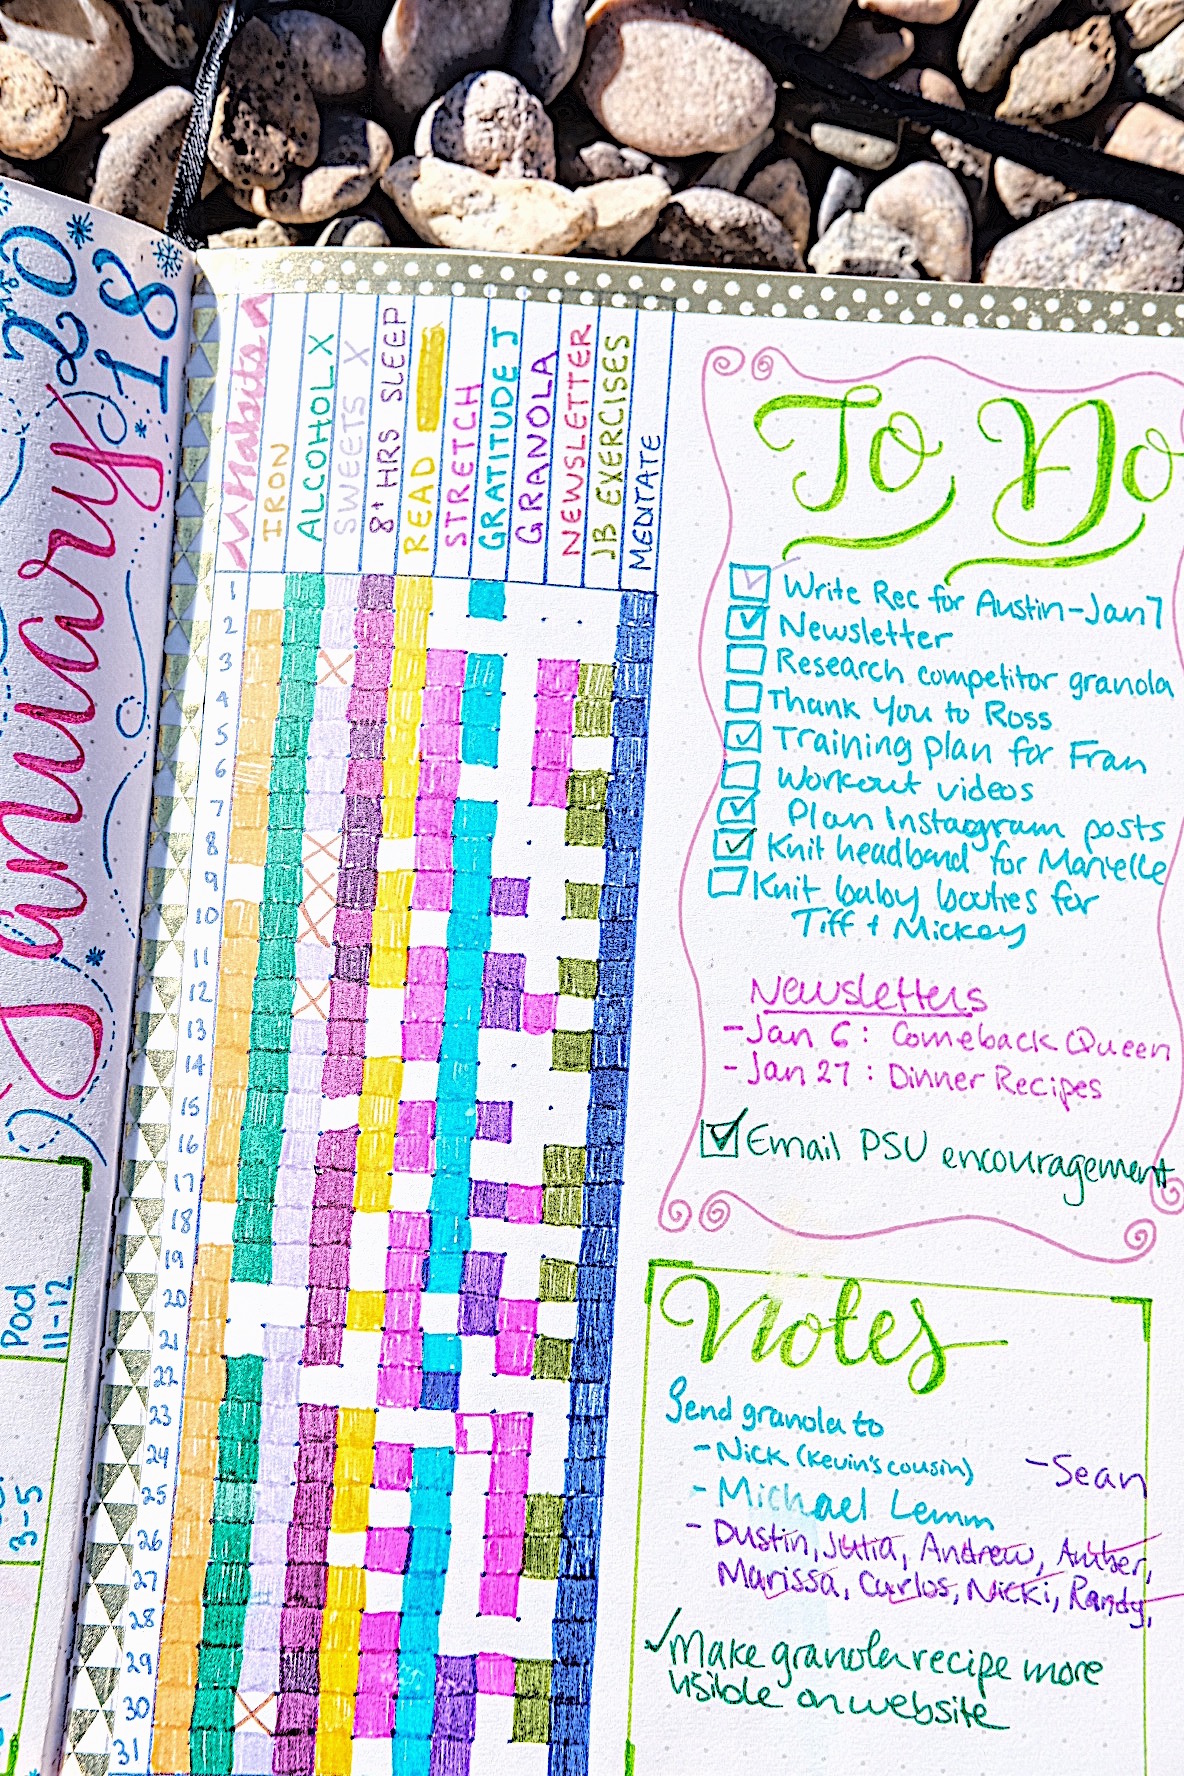 2018
January
Pool
11-12
3-5
Habits
IRON
ALCOHOL X
SWEETS X
8+ HRS SLEEP
READ
STRETCH
GRATITUDE J
GRANOLA
NEWSLETTER
JB EXERCISES
MEDITATE
1
2
3
4
5
6
7
8
9
10
11
12
13
14
15
16
17
18
19
20
21
22
23
24
25
26
27
28
29
30
31
To Do
Write Rec for Austin-Jan 7
Newsletter
Research competitor granola
Thank You to Ross
Training plan for Fran
Workout videos
Plan Instagram posts
Knit headband for Marielle
Knit baby booties for
Tiff + Mickey
Newsletters
-Jan 6: Comeback Queen
-Jan 27: Dinner Recipes
Email PSU encouragement
Notes
Send granola to
-Nick (Kevin's cousin)
-Sean
-Michael Lemm
-Dustin, Julia, Andrew, Amber,
Marissa, Carlos, Nicki, Randy,
Make granola recipe more
visible on website